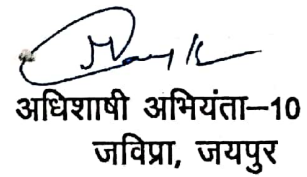 अधिशाषी अभियंता–10
जविप्रा, जयपुर